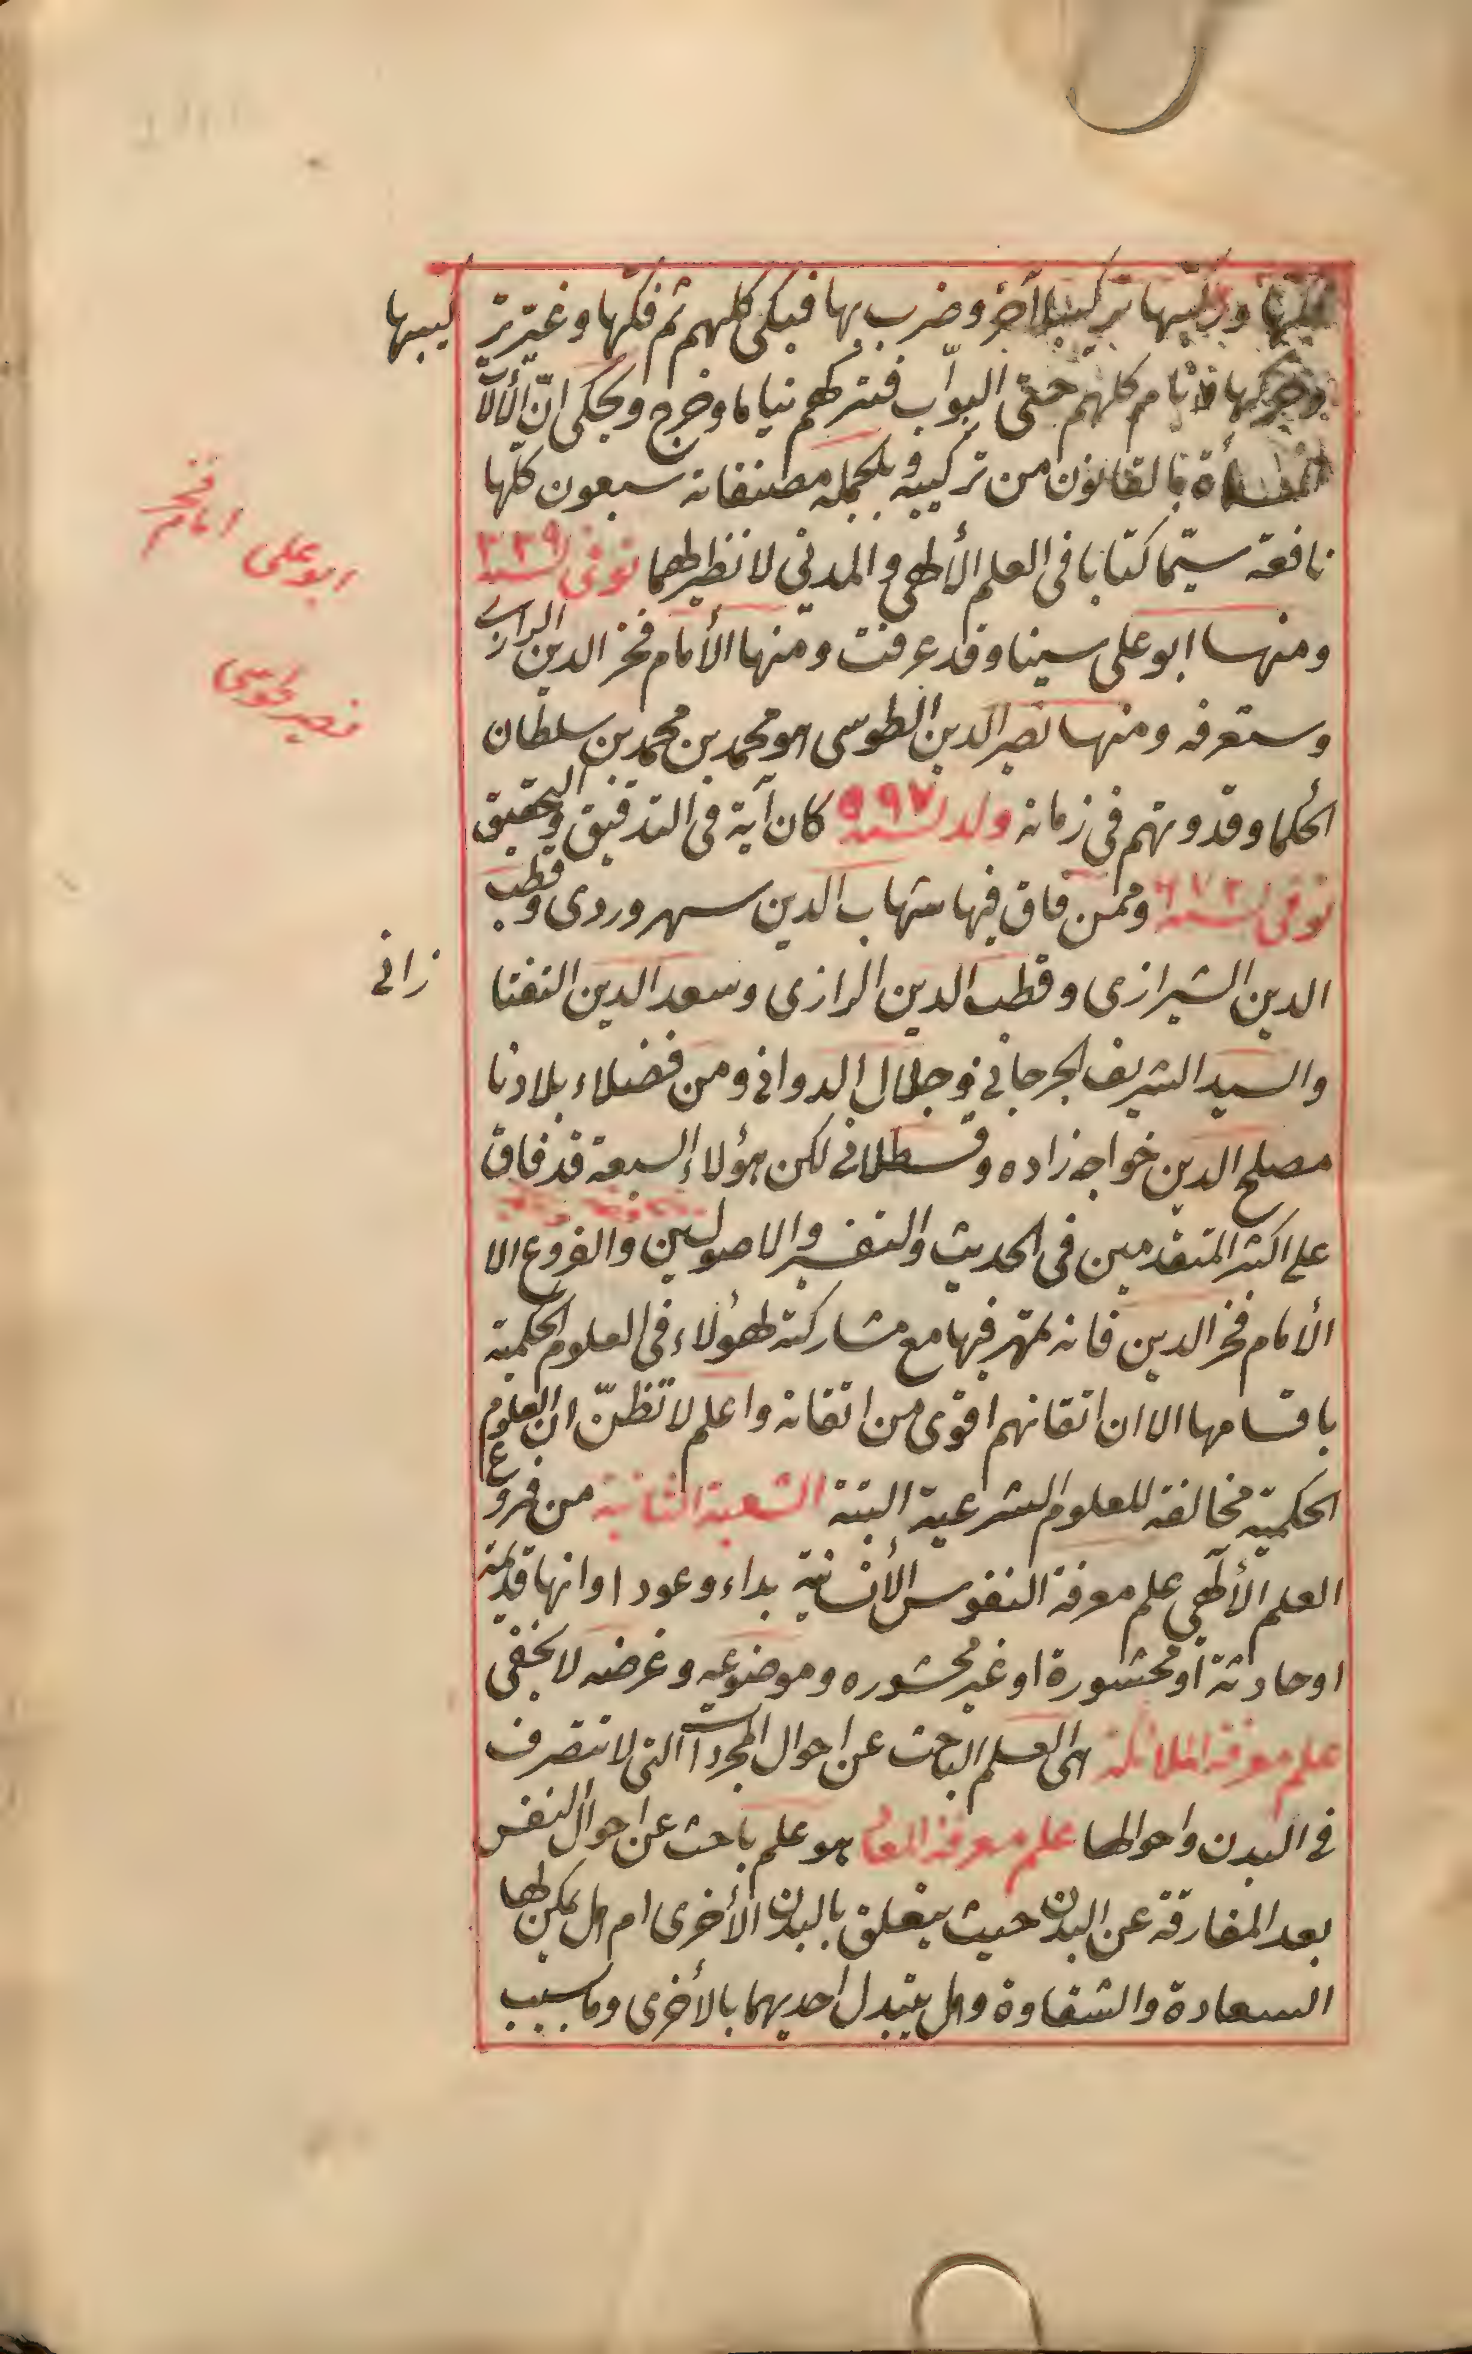 فكّها وركّبها تركيبا آخر وضرب بها فبكى كلهم ثم فكّها وغيّر تر كيبها
وحركها فنام كلهم حتى البواب فتركهم نياما وخرج ويحكى انّ الآلات
المسماة بالقانون من تركيبه وبالجمله مصنفاته سبعون كلها
نافعة سيّما كتابا فى العلم الألهى والمدني لا نظير لهما توفى لسنه ٣٣٩
ومنها ابو على سينا وقد عرفت ومنها الأمام فخر الدين الرازى
وستعرفه ومنها نصير الدين الطوسى هو محمد بن محمد بن سلطان
الحكما وقدوتهم في زمانه ولد لسنه ٥٩٧ كان آية فى التدقيق والتحقيق
توفى لسنه ٦٧٢ وممن فاق فيها شهاب الدين سهروردى وقطب
الدين الشيرازى وقطب الدين الرازى وسعد الدين التفتا زانى
والسيد الشريف الجرجاني وجلال الدوانى ومن فضلاء بلادنا
مصلح الدين خواجه زاده وقسطلانى لكن هؤلاء السبعة قد فاق
على اكثر المتقدمين فى الحديث والتفسير والاصولين والفروع الا
الأمام فخر الدين فانه تمهر فيها مع مشاركته لهؤلاء فى العلوم الحكمية
باقسامها الا ان اتقانهم اقوى من اتقانه واعلم لا تظنّ ان العلوم
الحكمية مخالفة للعلوم الشرعية البتة الشعبة الثانية من فروع
العلم الألهى علم معرفة النفوس الأنسانية بداء وعودا وانها قديمة
او حادثة او محشورة او غير محشوره وموضوعه وغرضه لا يخفى
علم معرفة الملائكة هى العلم الباحث عن احوال المجردات التى لا تتصرف
فى البدن واحوالها علم معرفة المعاد هو علم باحث عن احوال النفس
بعد المفارقة عن البدن حيث يتعلق بالبدن الأخرى ام هل يمكن لها
السعادة والشقاوة وهل يتبدل احديهما بالأخرى وما سبب
ابو على امام فخر
نصير طوسى